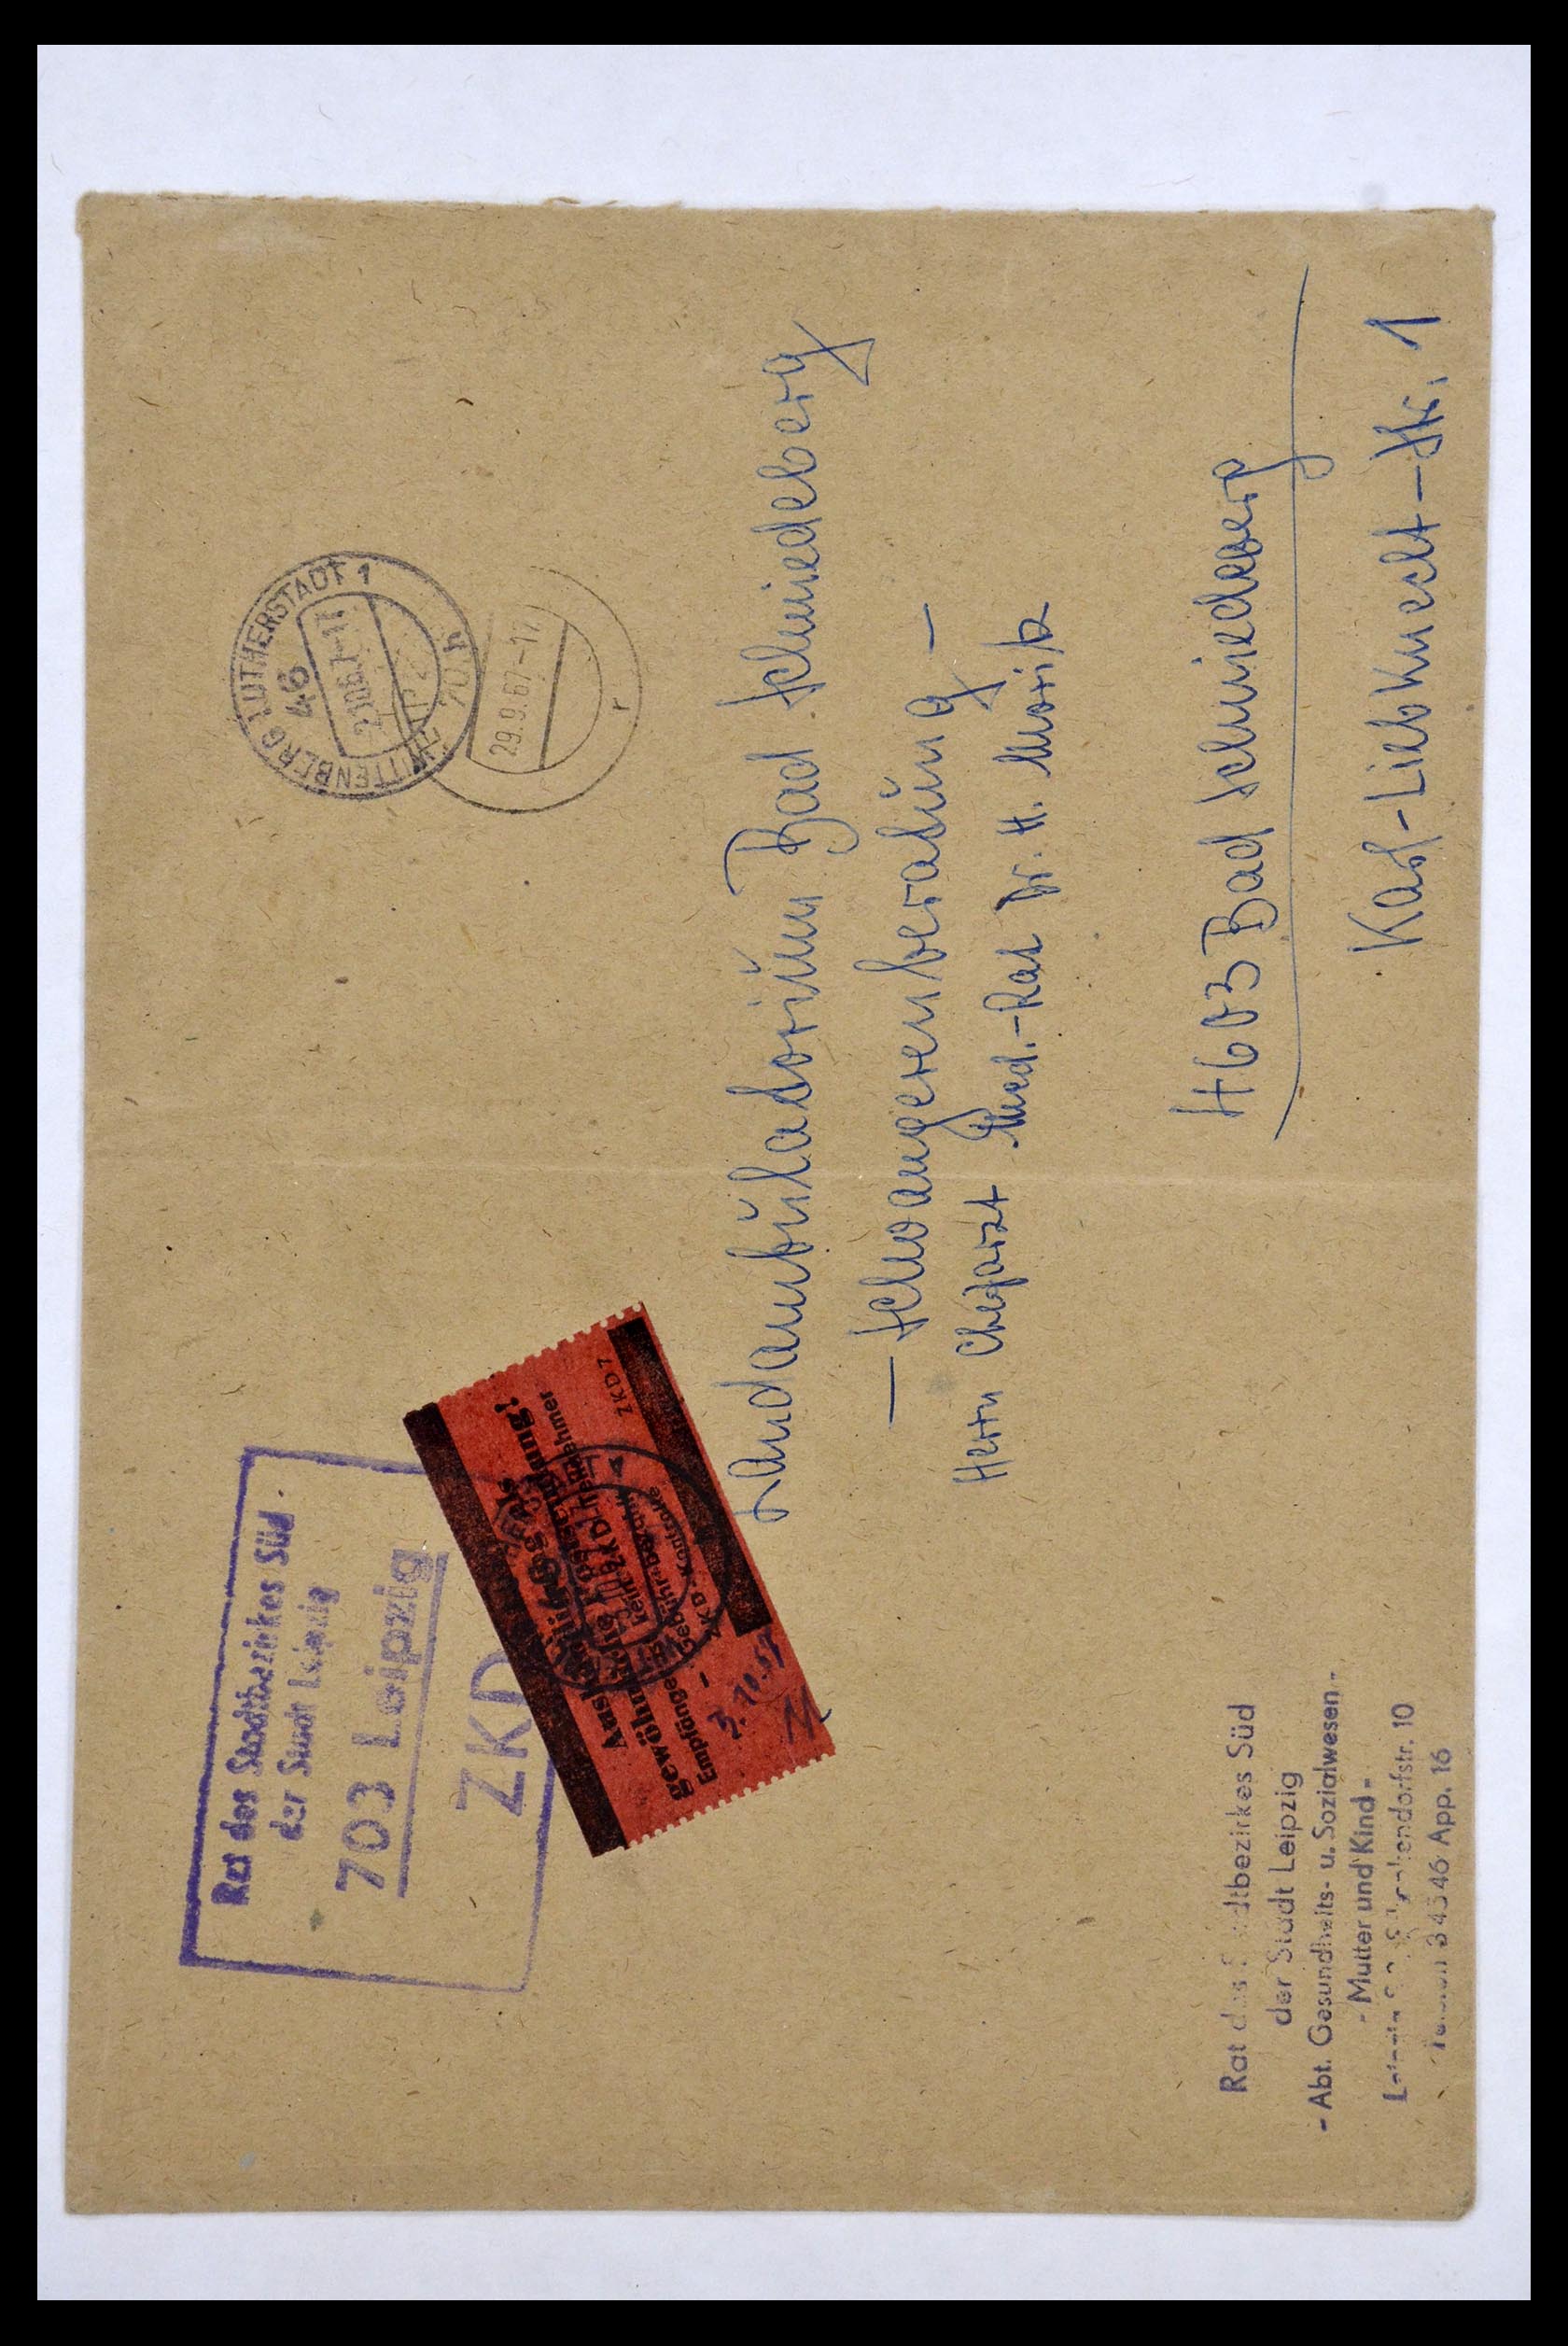 Rat des Stadtbezirkes Süd
der Stadt Leipzig
703 Leipzig
ZKD
Aushändigung als
gewöhnliche Postsendung!
Empfänger ist kein ZKD-Teilnehmer
- Gebühr bezahlt
ZKD-Kontrolle
ZKD 7
3.10.67
WITTENBERG LUTHERSTADT 1
46
2.10.67-17
LEIPZIG
701
29.9.67-17
r
Landambulatorium Bad Schmiedeberg
- Schwangerenberatung -
Herrn Chefarzt Med.-Rat Dr. H. Moritz
4603 Bad Schmiedeberg
Karl-Liebknecht-Str. 1
Rat des Stadtbezirkes Süd
der Stadt Leipzig
- Abt. Gesundheits- u. Sozialwesen -
- Mutter und Kind -
10
App. 16